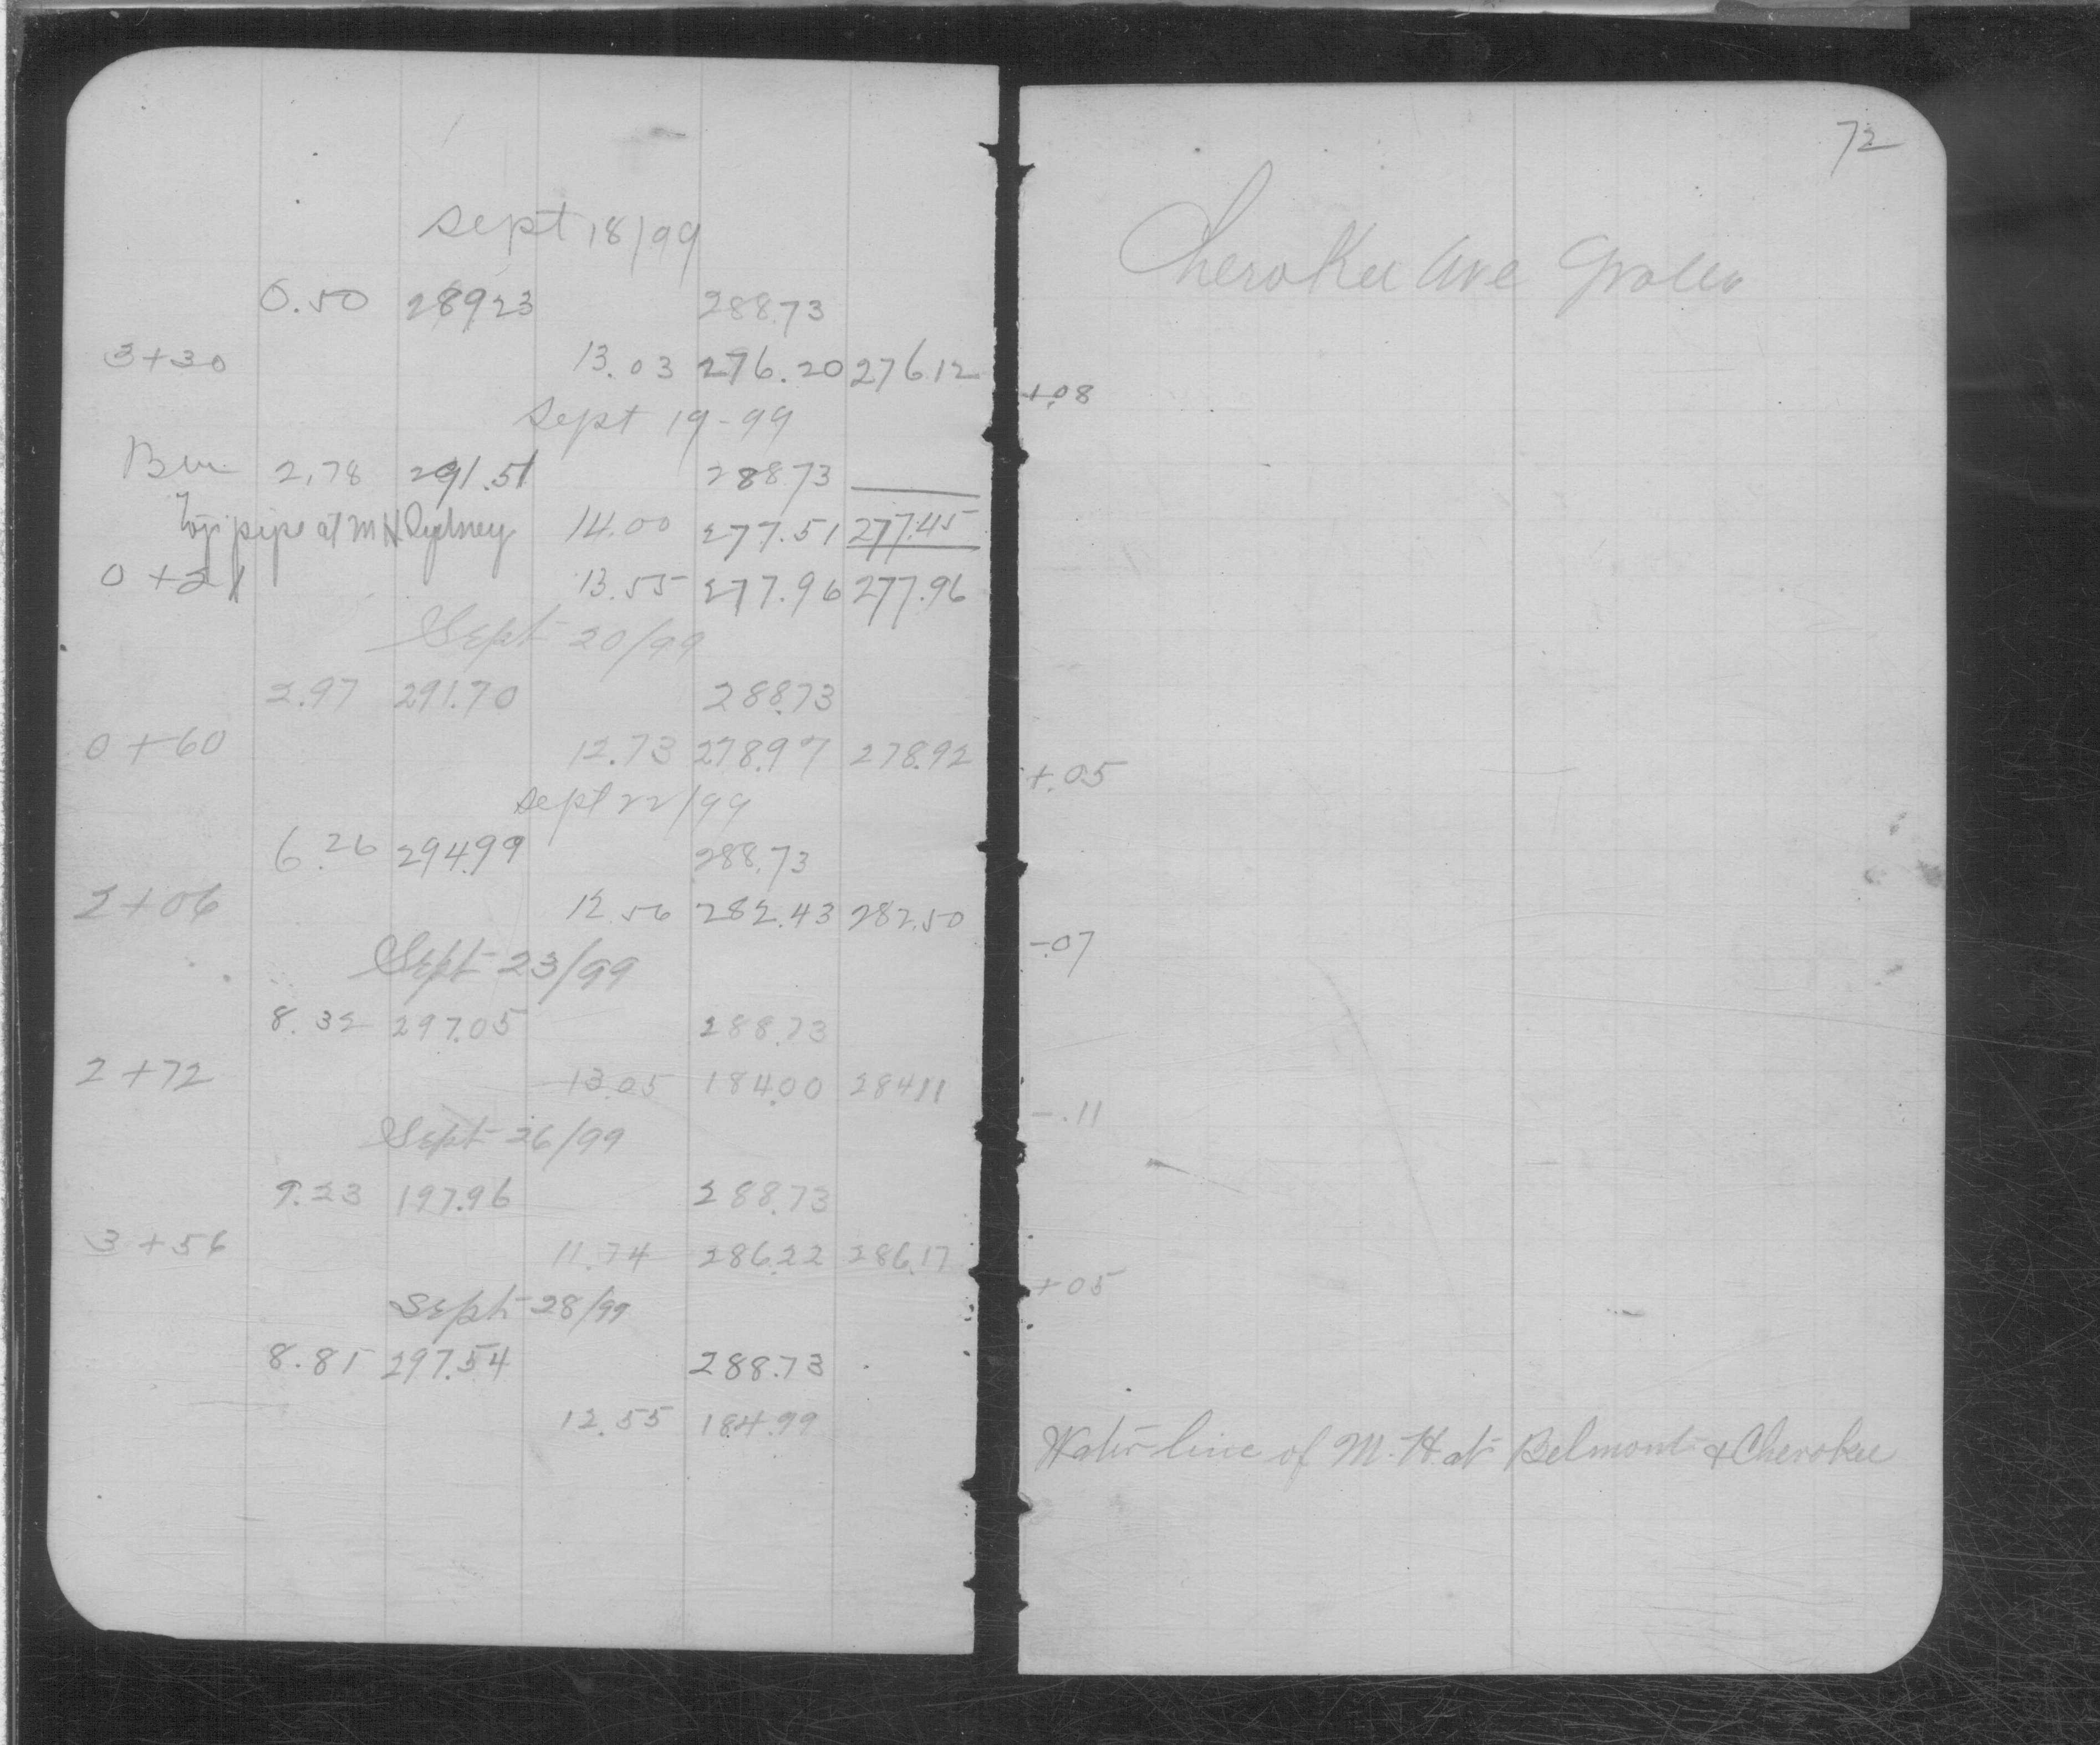 Sept 18/99
0.50 289.23 288.73
3+30 13.03 276.20 276.12
Sept 19-99
Bm 2.78 291.51 288.73
Top pipe at M H Sydney 14.00 277.51 277.45
0+21 13.55 277.96 277.96
Sept 20/99
2.97 291.70 288.73
0+60 12.73 278.97 278.92
Sept 22/99
6.26 294.99 288.73
2+06 12.56 282.43 282.50
Sept 23/99
8.32 297.05 288.73
2+72 13.05 184.00 284.11
Sept 26/99
9.23 197.96 288.73
3+56 11.74 286.22 286.17
Sept 28/99
8.81 297.54 288.73
12.55 184.99
72
Cherokee Ave
+.08
+.05
-.07
-.11
+05
Water line of M.H. at Belmont & Cherokee